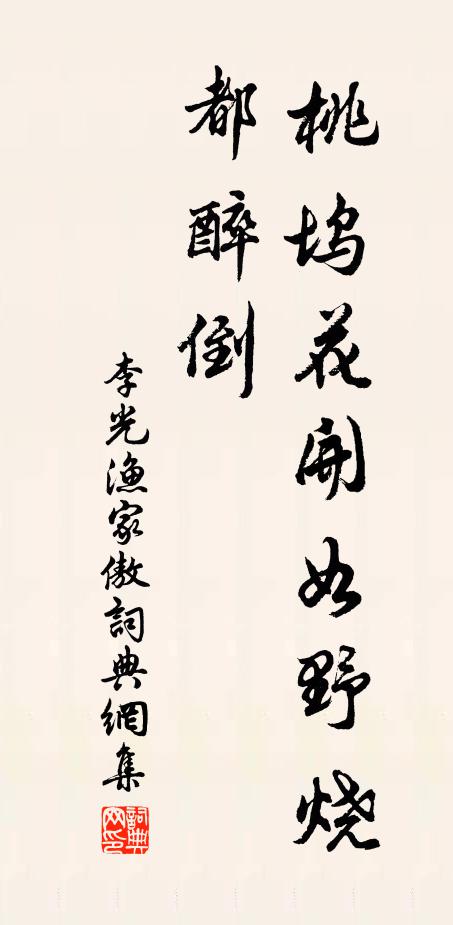 桃坞花开如野烧
都醉倒
李光渔家傲詞典網集
詞典網印